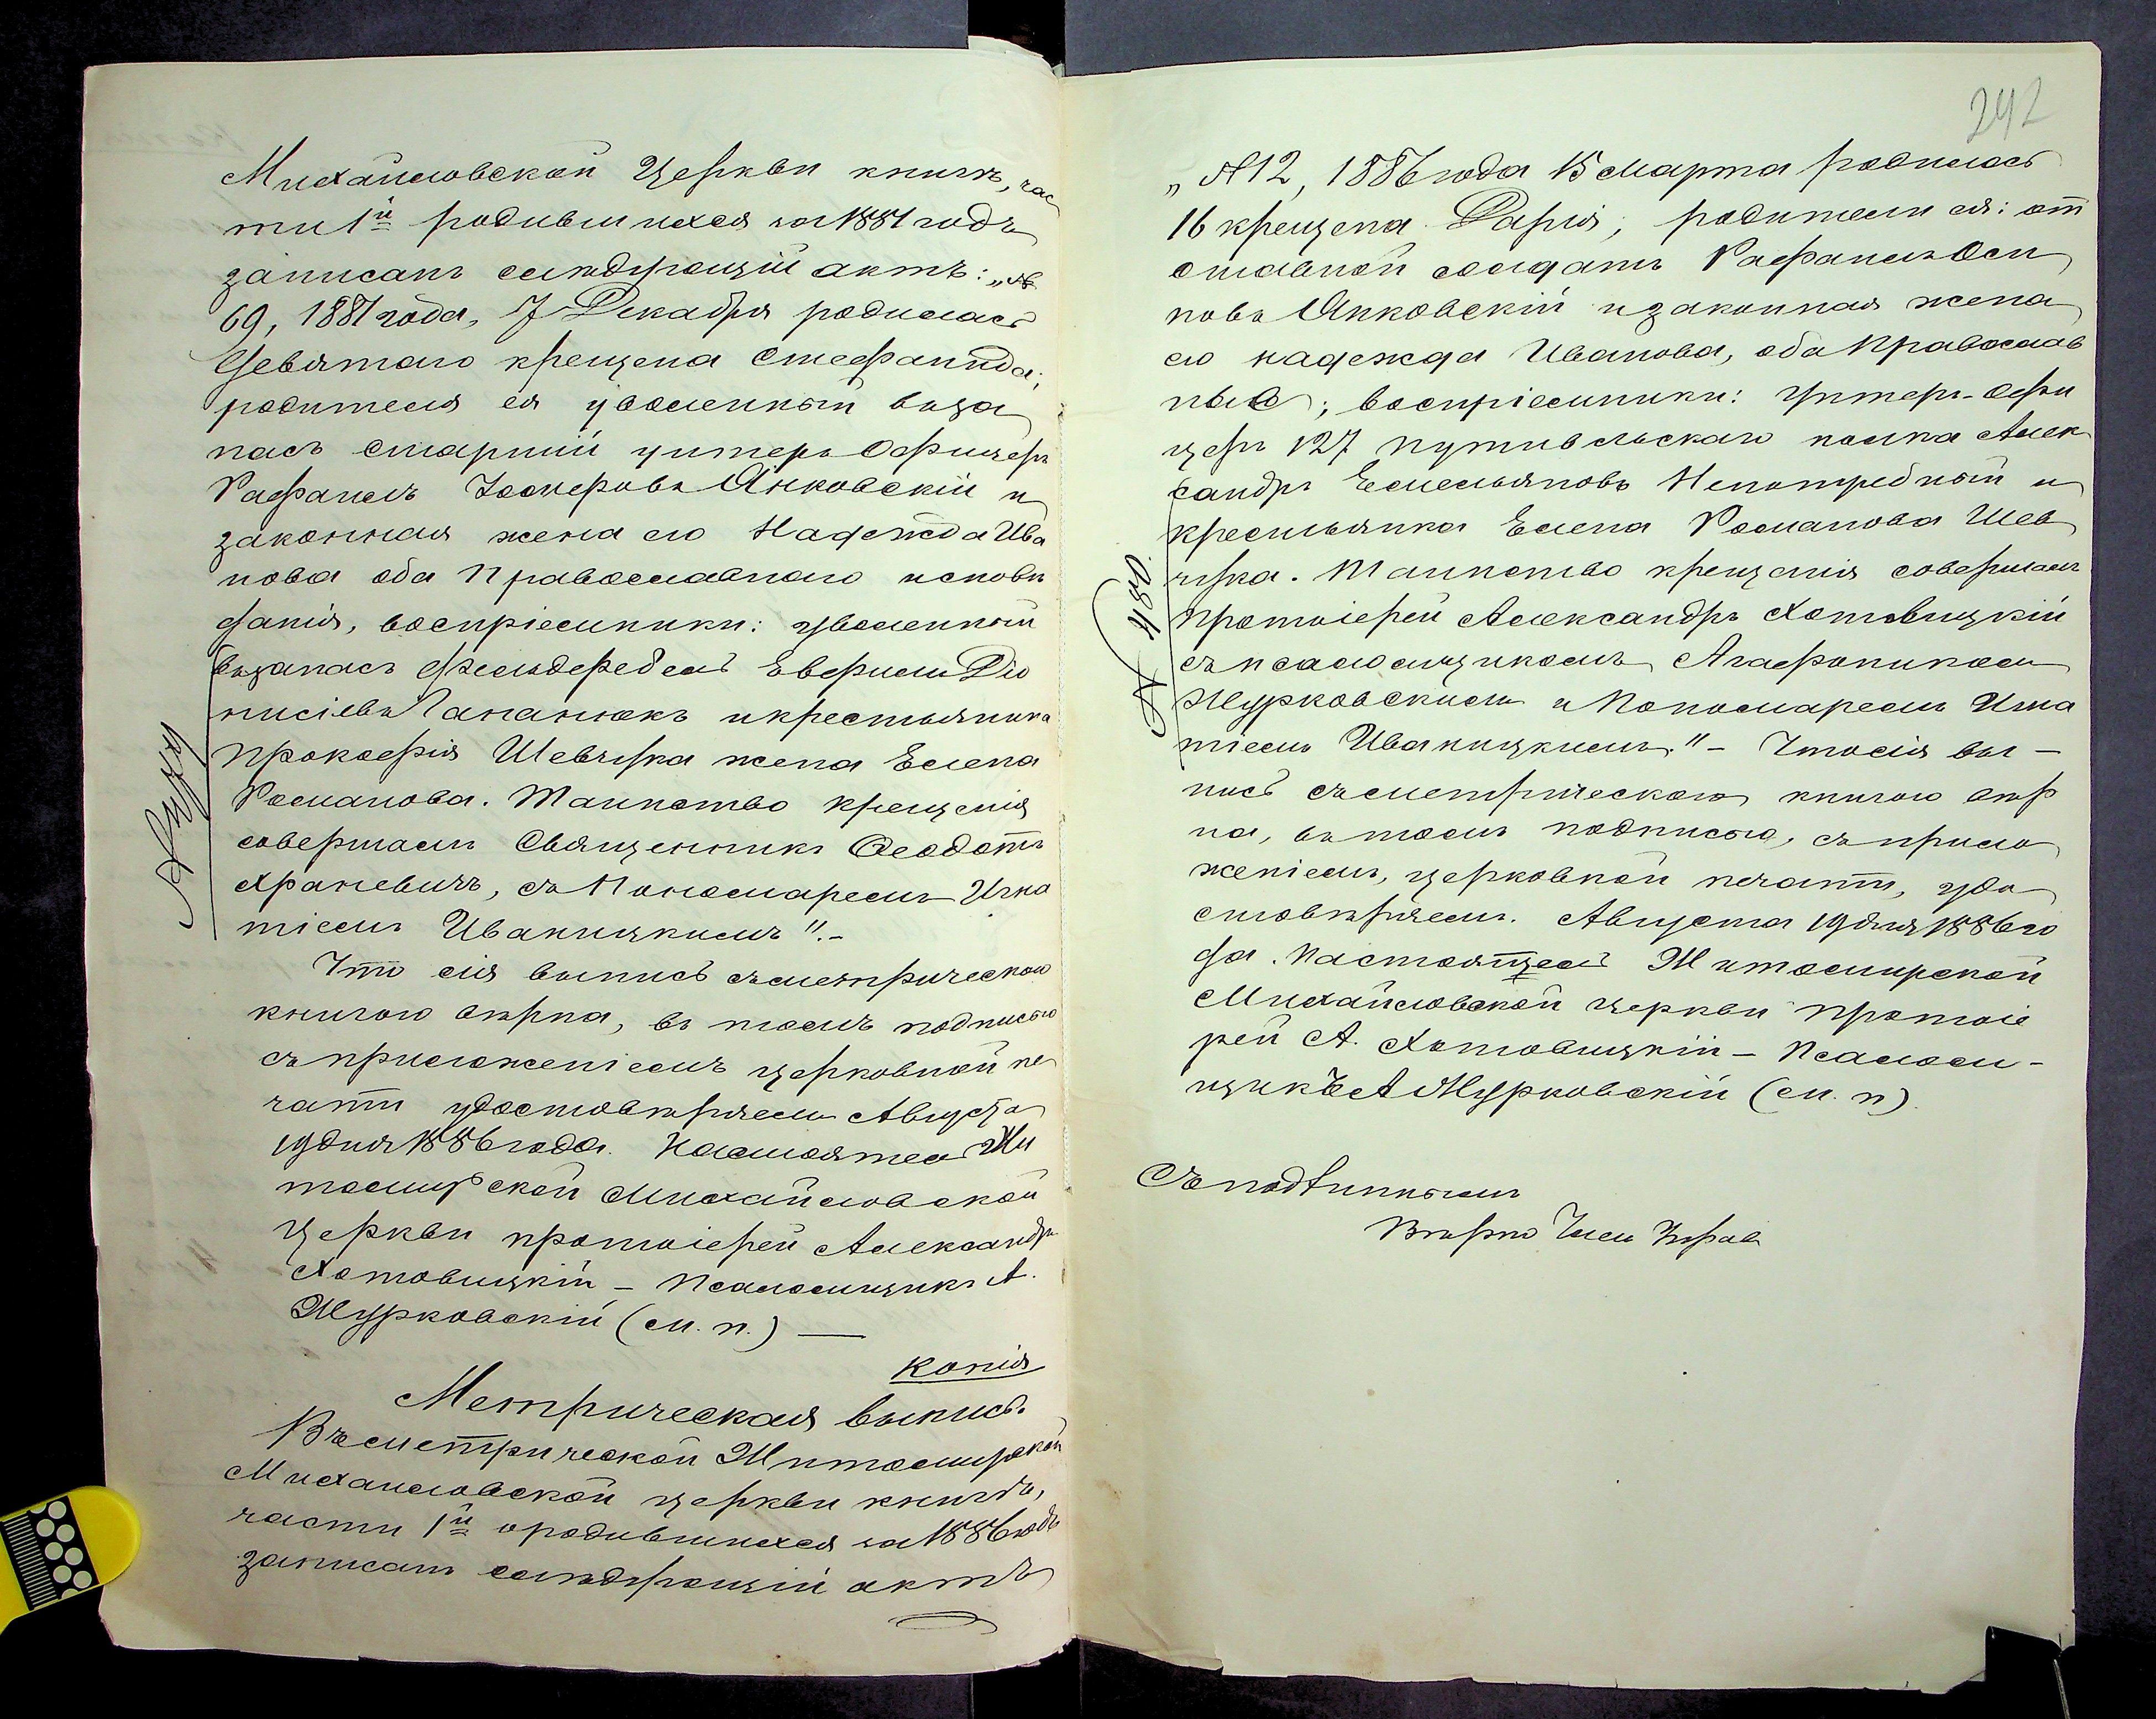 Михайловской Церкви книгѣ, час
ти 1й родившихся за 1881 годъ
записанъ слѣдующій актъ: „№
69, 1881 года, 7 Декабря родилась
девятаго крещена Стефанида;
родители ея уволенный въ за
пасъ старшій унтеръ Офицеръ
Рафаилъ Іосифовъ Янковскій и
законная жена его Надежда Ива
нова оба Православнаго исповѣ
данія, воспріемники: уволенный
въ запасъ фельдфебель Діо
нисіевъ и крестьянина
Прокофія Шевчука жена Елена
Романова. Таинство крещенія
совершалъ Священникъ Ѳеодотъ
Храневичъ, съ Пономаремъ Игна
тіемъ Иваницкимъ".-
Что сія выпись съ метрическою
книгою вѣрна, въ томъ подписью
съ приложеніемъ церковной пе
чати удостовѣряемъ Августа
19 дня 1886 года. Настоятель Жи
томирской Михайловской
Церкви протоіерей Александръ
Хотовицкій - Псаломщикъ А.
Журковскій (м. п.) —
Копія
Метрическая выпись.
Въ метрической Житомирской
Михайловской церкви книгѣ,
части 1й о родившихся за 1886 годъ
записанъ слѣдующій актъ
292
„№ 12, 1886 года 15 марта родилась
16 крещена Дарія; родители ея: от
ставной солдатъ Рафаилъ Оси
повъ Янковскій и законная жена
его Надежда Иванова, оба православ
ные; воспріемники: Унтеръ-Офи
церъ 127 Путивльскаго полка Алек
сандръ Емельяновъ и
крестьянка Елена Романова Шев
чука. Таинство крещенія совершалъ
Протоіерей Александръ Хотовицкій
съ псаломщикомъ Агафоникомъ
Журковскимъ и Пономаремъ Игна
тіемъ Иваницкимъ." - Что сія вы-
пись съ метрическою книгою вѣр
на, въ томъ подписью, съ прило
женіемъ, церковной печати, удо
стовѣряемъ. Августа 19 дня 1886 го
да. Настоятель Житомирской
Михайловской церкви протоіе
рей А. Хотовицкій - Псалом-
щикъ А Журковскій (м. п.)
Съ подлиннымъ
Вѣрно Членъ